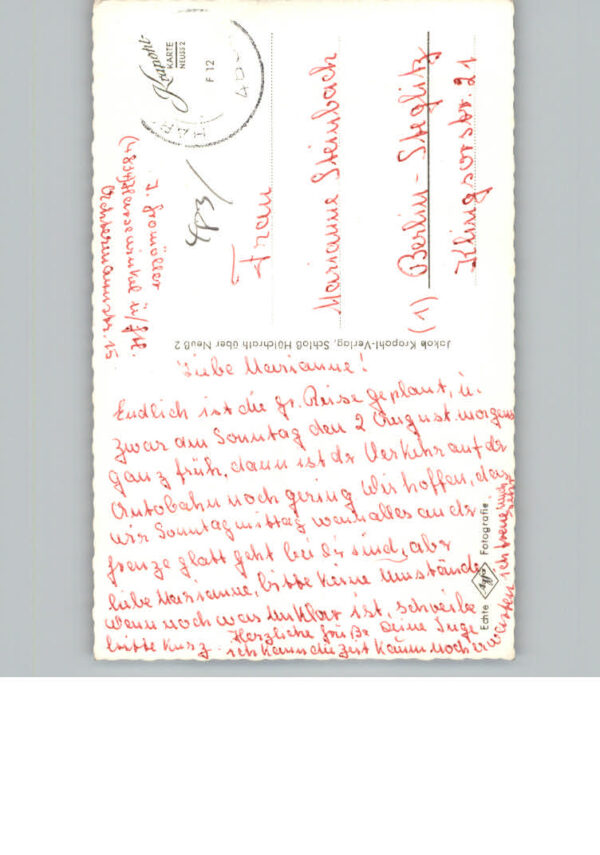 Liebe Marianne!
Endlich ist die gr. Reise geplant, u.
zwar am Sonntag den 2 August morgens
ganz früh, dann ist der Verkehr auf der
Autobahn noch gering Wir hoffen, das
wir Sonntag mittag wenn alles an der
Grenze glatt geht bei Dir sind, aber
liebe Marianne, bitte keine Umstände
Wenn noch was unklar ist, schreibe
bitte kurz.
Herzliche Grüße Deine Inge
ich kann die Zeit kaum noch er
warten ich freue mich
sehr
Echte Agfa Fotografie
Jakob Krapohl-Verlag, Schloß Hülchrath über Neuß 2
I.
483
Krapohl-
KARTE
NEUSS 2
F 12
Frau
Marianne Steinbach
(1) Berlin-Steglitz
Klingsorstr. 21